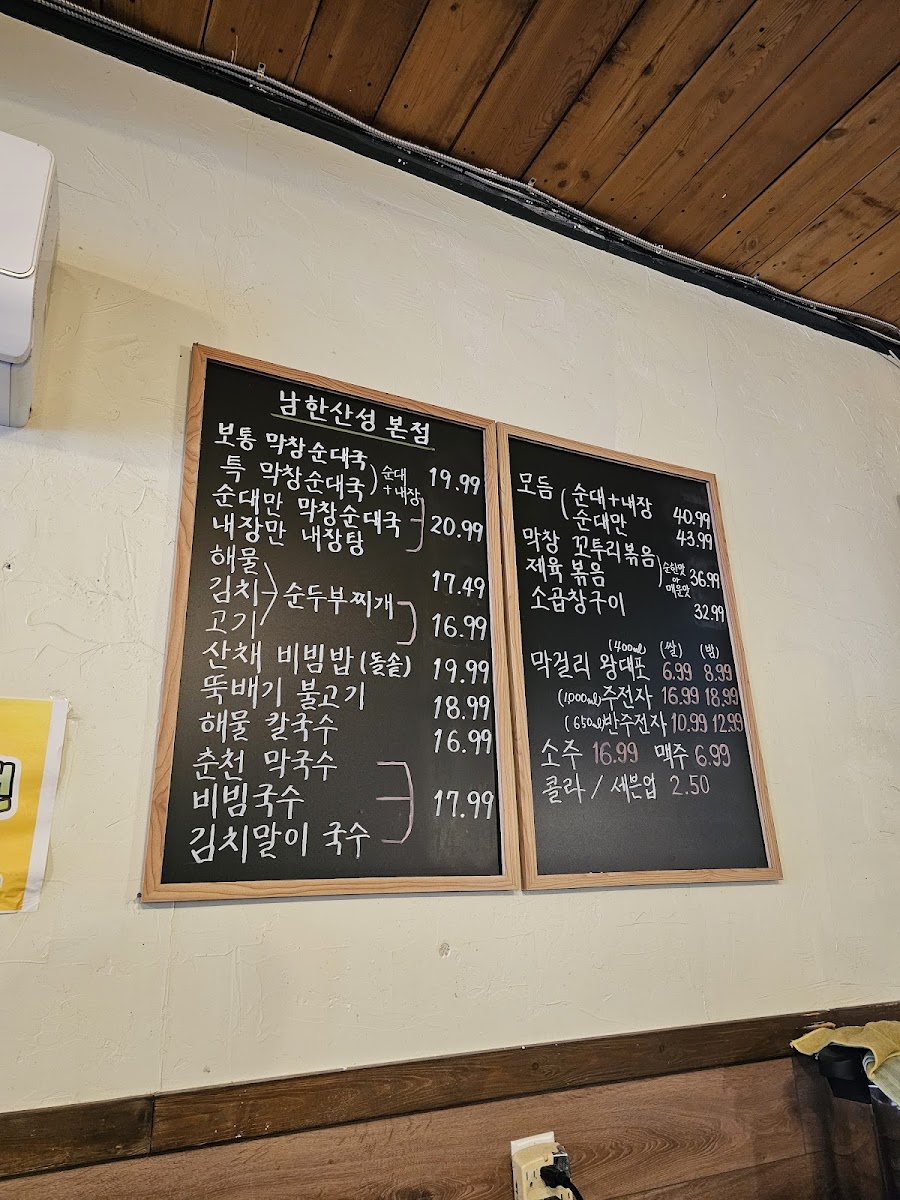 남한산성 본점
보통 막창순대국
특 막창순대국 ) 순대+내장 19.99
순대만 막창순대국
내장만 내장탕 20.99
해물 17.49
김치 순두부찌개
고기 16.99
산채 비빔밥 (돌솥) 19.99
뚝배기 불고기 18.99
해물 칼국수 16.99
춘천 막국수
비빔국수 17.99
김치말이 국수
모듬 ( 순대+내장 40.99
순대만 43.99
막창 꼬투리볶음
제육 볶음 ) 순한맛 or 매운맛 36.99
소곱창구이 32.99
(400ml) (쌀) (밤)
막걸리 왕대포 6.99 8.99
(1,000ml)주전자 16.99 18.99
(650ml)반주전자 10.99 12.99
소주 16.99 맥주 6.99
콜라 / 세븐업 2.50